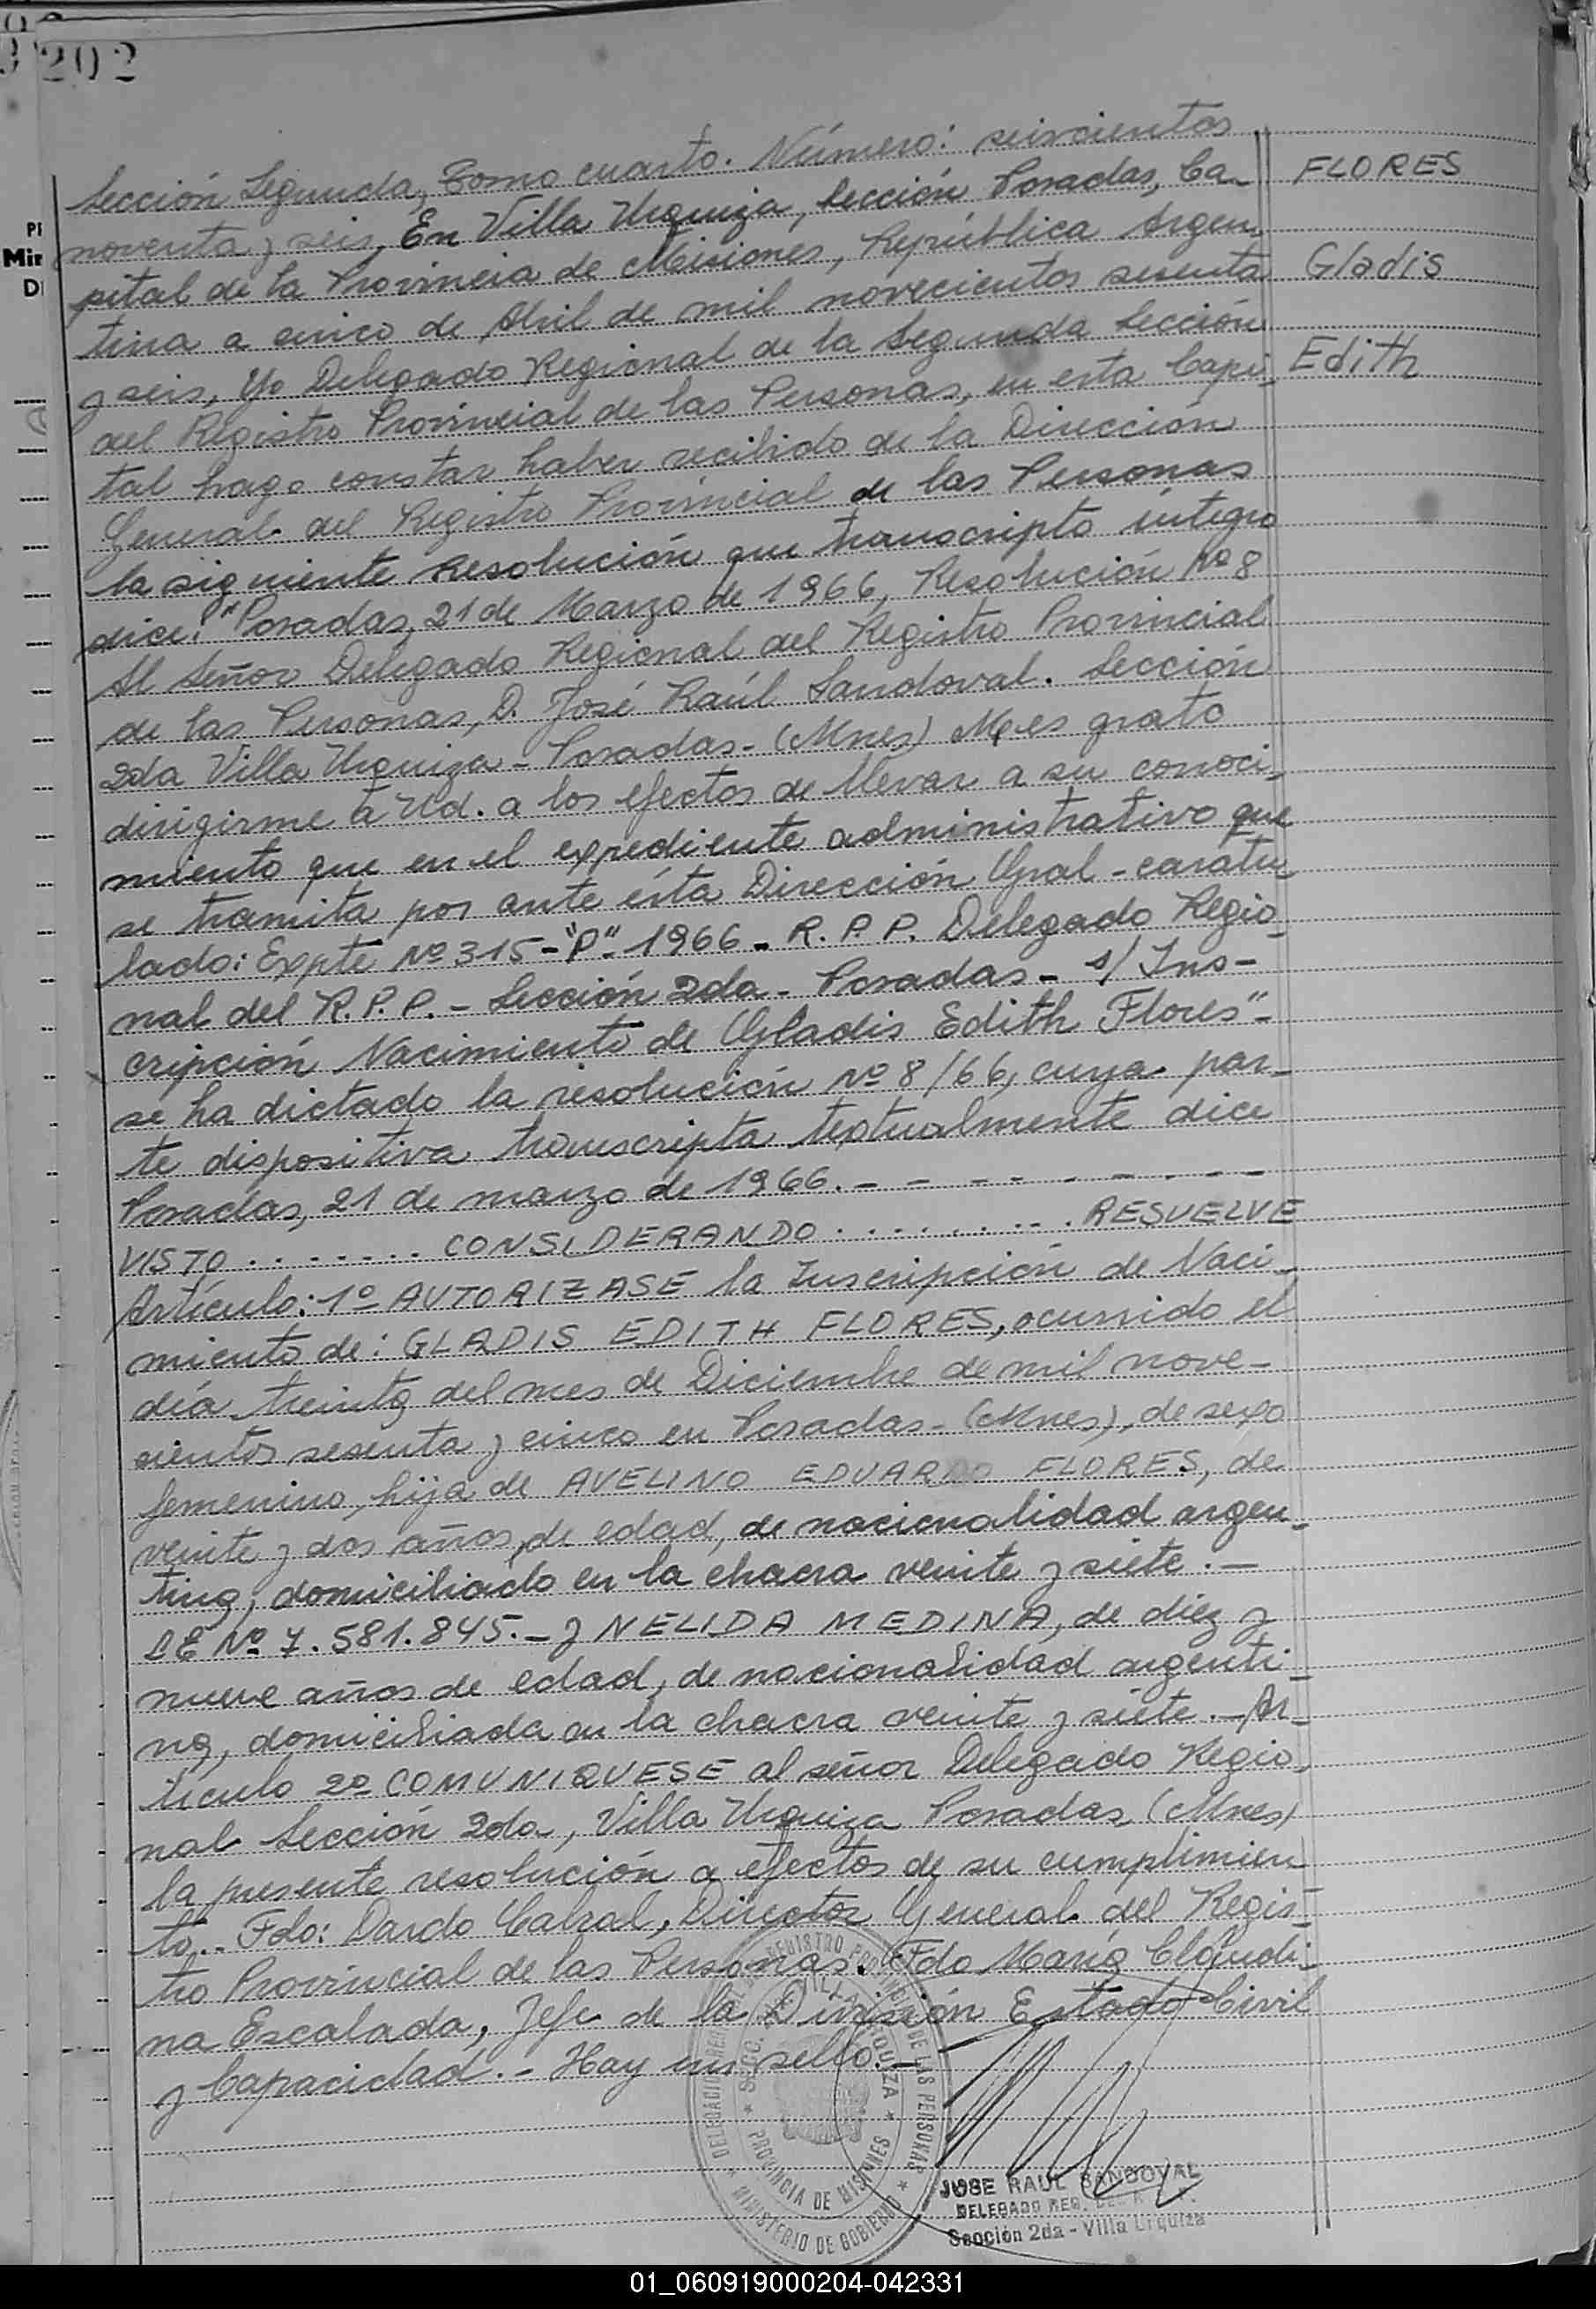 202
Sección Segunda, Tomo cuarto. Número: seiscientos
noventa y seis, En Villa Urquiza, Sección Posadas, Ca-
pital de la Provincia de Misiones, República Argen-
tina a cinco de Abril de mil novecientos sesenta
y seis, Yo Delegado Regional de la Segunda Sección
del Registro Provincial de las Personas, en esta Capi-
tal hago constar haber recibido de la Dirección
General del Registro Provincial de las Personas
la siguiente Resolución que transcripto íntegro
dice: "Posadas, 21 de Marzo de 1966, Resolución Nº 8
Al Señor Delegado Regional del Registro Provincial
de las Personas, D. José Raúl Sandoval. Sección
2da Villa Urquiza - Posadas - (Mnes) Me es grato
dirigirme a Ud. a los efectos de llevar a su conoci-
miento que en el expediente administrativo que
se tramita por ante ésta Dirección Gral - caratu-
lado: Expte Nº 315 - "P" - 1966 - R. P. P. Delegado Regio-
nal del R. P. P. - Sección 2da - Posadas - s/ Ins-
cripción Nacimiento de Gladis Edith Flores" -
se ha dictado la resolución Nº 8/66, cuya par-
te dispositiva transcripta textualmente dice
Posadas, 21 de marzo de 1966. - - - - - - - - -
VISTO ....... CONSIDERANDO ......... RESUELVE
Artículo: 1º AUTORIZASE la Inscripción de Naci-
miento de: GLADIS EDITH FLORES, ocurrido el
día treinta del mes de Diciembre de mil nove-
cientos sesenta y cinco en Posadas - (Mnes), de sexo
femenino, hija de AVELINO EDUARDO FLORES, de
veinte y dos años de edad, de nacionalidad argen-
tina, domiciliado en la chacra veinte y siete. -
LE Nº 7.581.845. - y NELIDA MEDINA, de diez y
nueve años de edad, de nacionalidad argenti-
na, domiciliada en la chacra veinte y siete. - Ar-
tículo 2º COMUNIQUESE al señor Delegado Regio-
nal Sección 2da, Villa Urquiza Posadas (Mnes)
la presente resolución a efectos de su cumplimien
to. - Fdo: Dardo Cabral, Director General del Regis-
tro Provincial de las Personas. Fdo María Claudi-
na Escalada, Jefe de la División Estado Civil
y Capacidad. - Hay un sello. -
FLORES
Gladis
Edith
REGISTRO PROVINCIAL DE LAS PERSONAS
SECC. 2da VILLA URQUIZA
PROVINCIA DE MISIONES
MINISTERIO DE GOBIERNO
JOSE RAUL SANDOVAL
DELEGADO REG. DEL R.
Sección 2da - Villa Urquiza
01_060919000204-042331